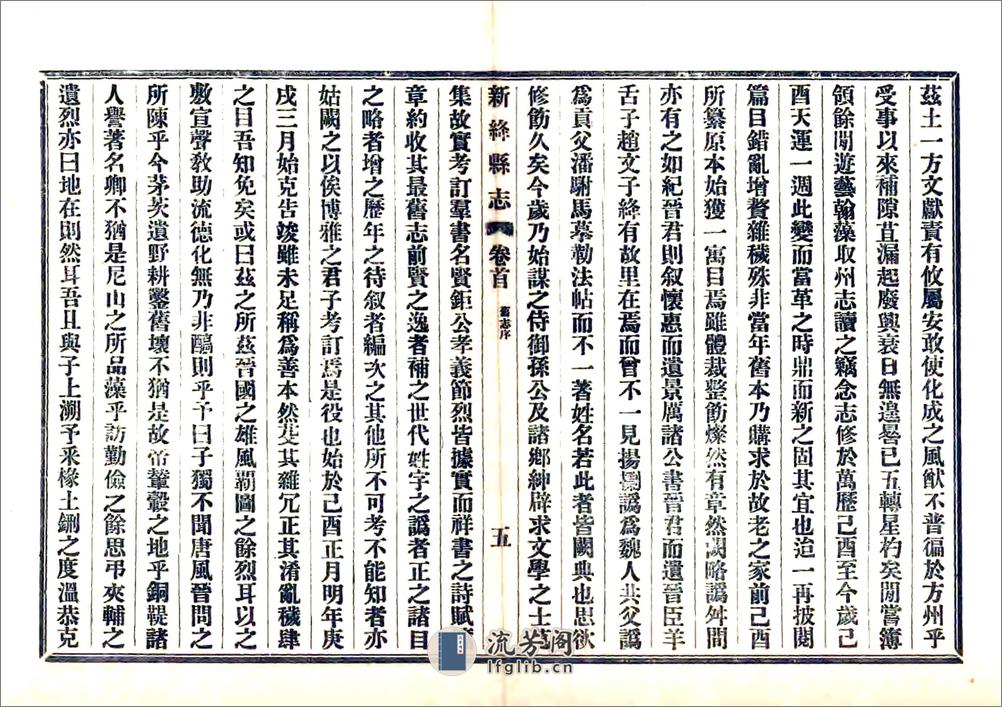 茲土一方文獻責有攸屬安敢使化成之風猷不普徧於方州乎
受事以來補隙苴漏起廢興衰日無遑晷已五轉星杓矣閒嘗簿
領餘閒遊藝翰藻取州志讀之竊念志修於萬歷己酉至今歲己
酉天運一週此變而當革之時鼎而新之固其宜也迨一再披閱
篇目錯亂增贅雜穢殊非當年舊本乃購求於故老之家前己酉
所纂原本始獲一寓目焉雖體裁整飭燦然有章然闕略譌舛間
亦有之如紀晉君則叙懷惠而遺景厲諸公書晉君而遺晉臣羊
舌子趙文子絳有故里在焉而曾不一見揚摽譌為魏人共父譌
為貢父潘駙馬摹勒法帖而不一著姓名若此者皆闕典也思欲
修飭久矣今歲乃始謀之侍御孫公及諸鄉紳辟求文學之士
新絳縣志 卷首 舊志序 五
集故實考訂羣書名賢鉅公孝義節烈皆據實而祥書之詩賦
章約收其最舊志前賢之逸者補之世代姓字之譌者正之諸目
之略者增之歷年之待叙者編次之其他所不可考不能知者亦
姑闕之以俟博雅之君子考訂焉是役也始於己酉正月明年庚
戌三月始克告竣雖未足稱為善本然芟其雜冗正其淆亂穢肆
之目吾知免矣或曰茲之所茲晉國之雄風覇圖之餘烈耳以之
敷宣聲敎助流德化無乃非醕則乎予曰子獨不聞唐風晉問之
所陳乎今茅茨遺野耕鑿舊壤不猶是故帝輦轂之地乎銅鞮諸
人譽著名卿不猶是尼山之所品藻乎訪勤儉之餘思弔夾輔之
遺烈亦曰地在則然耳吾且與子上溯予采椽土鉶之度溫恭克
流芳阁
lfglib.cn